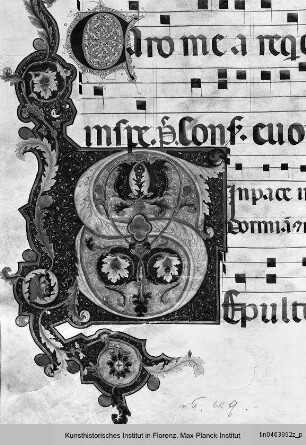 Caro mea reqe
in spe. p̄. Conſ. cuo
S Inpace in
dormiā
Sepult
Kunsthistorisches Institut in Florenz, Max Planck Institut
fln0463952z_p